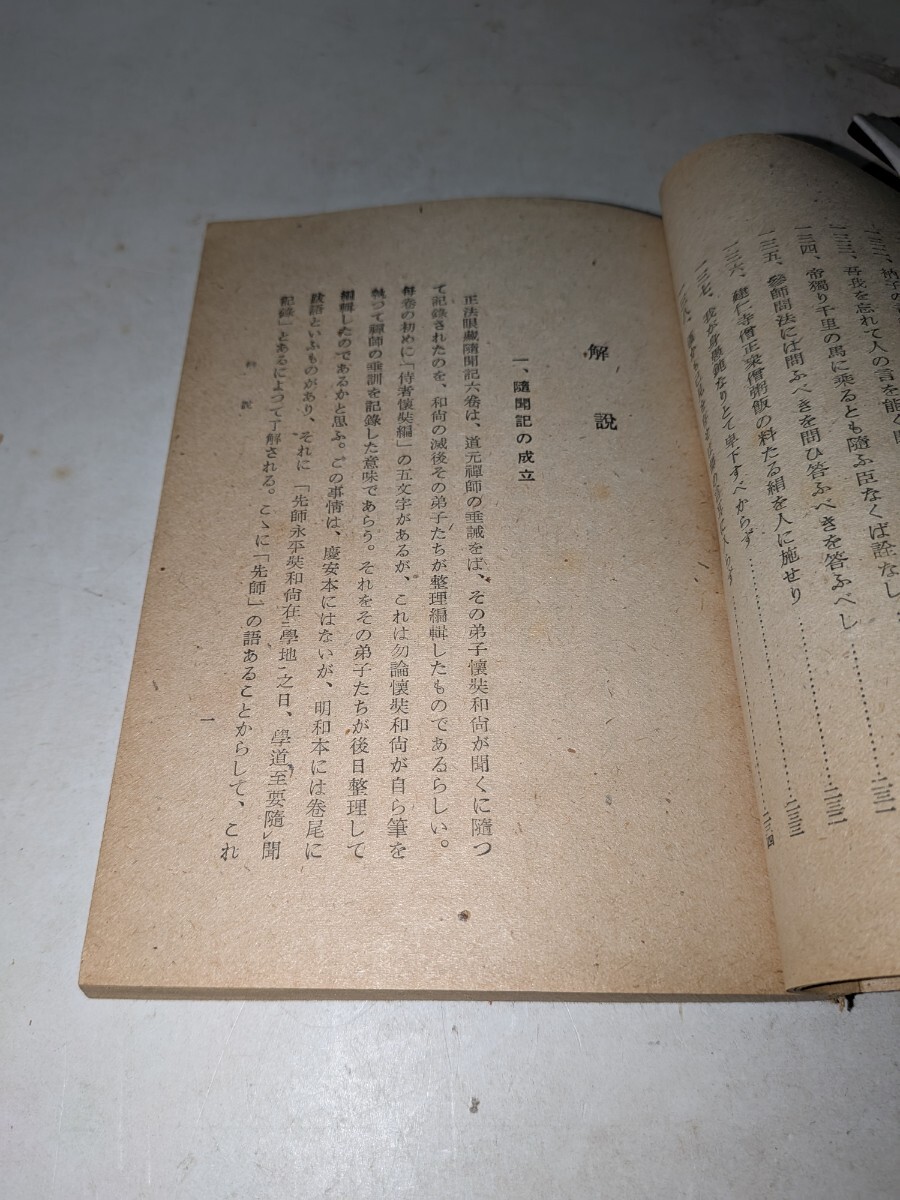 吾我を忘れて人の言を能く
一三四、帝獨り千里の馬に乘るとも隨ふ臣なくば詮なし
一三五、參師問法には問ふべきを問ひ答ふべきを答ふべし……二三二
一三六、建仁寺僧正衆僧粥飯の料たる絹を人に施せり……二三三
一三七、我が身愚鈍なりとて卑下すべからず……二三四
解說
一、隨聞記の成立
正法眼藏隨聞記六卷は、道元禪師の垂誡をば、その弟子懷奘和尙が聞くに隨つ
て記錄されたのを、和尙の滅後その弟子たちが整理編輯したものであるらしい。
每卷の初めに「侍者懷奘編」の五文字があるが、これは勿論懷奘和尙が自ら筆を
執つて禪師の垂訓を記錄した意味であらう。それをその弟子たちが後日整理して
編輯したのであるかと思ふ。この事情は、慶安本にはないが、明和本には卷尾に
跋語といふものがあり、それに「先師永平奘和尙在二學地一之日、學道至要隨レ聞
記錄」とあるによつて了解される。こゝに「先師」の語あることからして、これ
解說
一